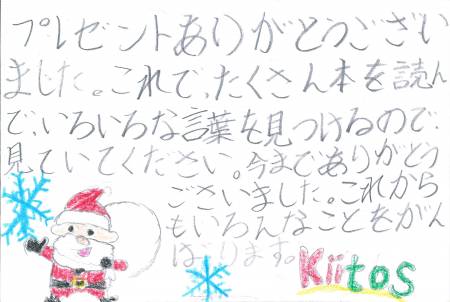 プレゼントありがとうござい
ました。これで、たくさん本を読ん
で、いろいろな言葉を見つけるので、
見ていてください。今までありがとう
ございました。これから
もいろんなことをがん
ばります。
Kiitos